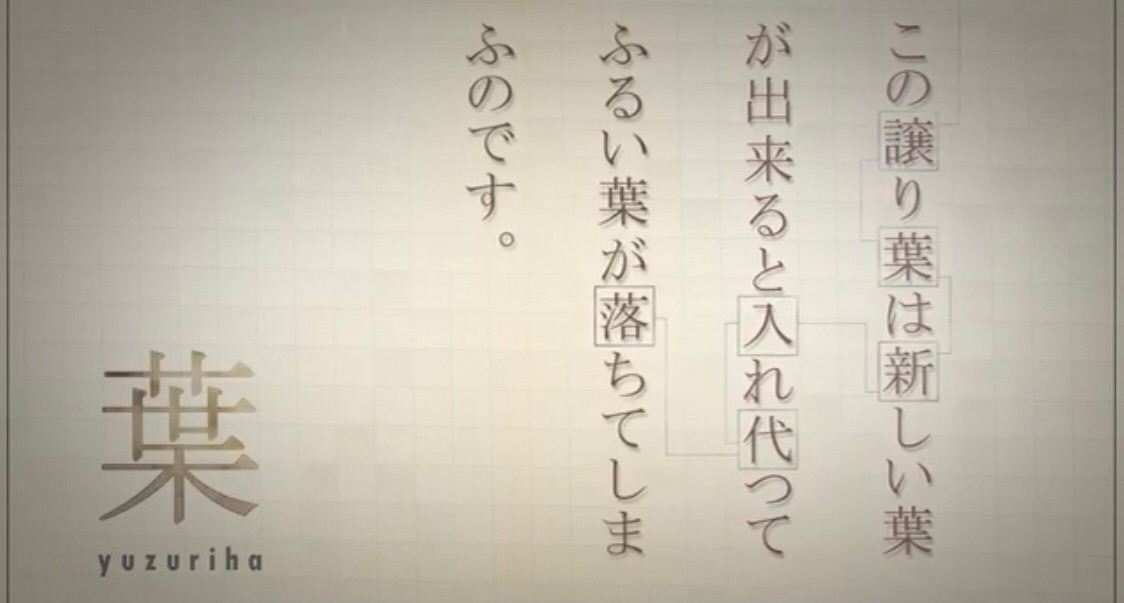 この譲り葉は新しい葉
が出来ると入れ代つて
ふるい葉が落ちてしま
ふのです。
葉
yuzuriha